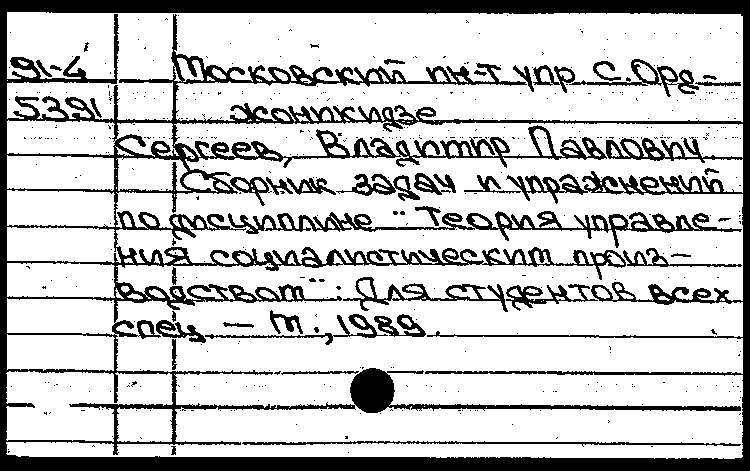 91-4 Московский ин-т упр С. Орд-
5391 жоникидзе
Сергеев, Владимир Павлович
Сборник задач и упражнений
по дисциплине "Теория управле-
ния социалистическим произ-
водством": Для студентов всех
спец — М., 1989.